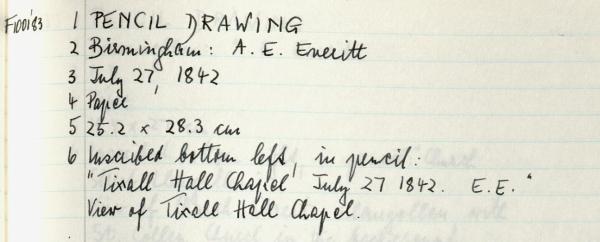 F1001'83 1 PENCIL DRAWING
2 Birmingham: A. E. Everitt
3 July 27, 1842
4 Paper
5 25.2 x 28.3 cm
6 Inscribed bottom left, in pencil:
"Tixall Hall Chapel July 27 1842. E.E."
View of Tixall Hall Chapel.